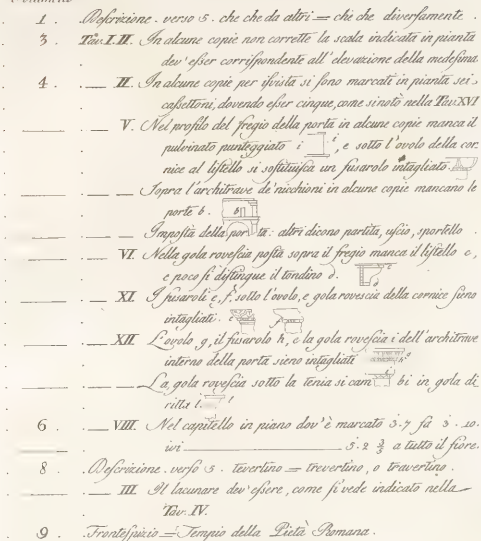 1 . Descrizione . verso 5 . che che da altri = chi che diversamente .
3 . Tav. I. II. In alcune copie non corrette la scala indicata in pianta
dev' esser corrispondente all' elevazione della medesima
4 . — II. In alcune copie per isvista si sono marcati in pianta sei
cassettoni, dovendo esser cinque, come si notò nella Tav. XVI
— V. Nel profilo del fregio della porta in alcune copie manca il
pulvinato punteggiato i , e sotto l'ovolo della cor
nice al listello si sostituisca un fusarolo intagliato
— — Sopra l'architrave de' nicchioni in alcune copie mancano le
porte b .
— — Imposta della por ta: altri dicono partita, uscio, sportello .
— VI. Nella gola rovescia posta sopra il fregio manca il listello c,
e poco si distingue il tondino d .
— XI. I fusaroli e, f. sotto l'ovolo, e gola rovescia della cornice sieno
intagliati . e
— XII. L'ovolo , g, il fusarolo h, e la gola rovescia i dell' architrave
interno della porta sieno intagliati
— — La gola rovescia sotto la tenia si cam bi in gola di
ritta l .
6 . — VIII. Nel capitello in piano dov' è marcato 3 . 7 fa 3 . 10 .
ivi 5 . 2 2/3 a tutto il fiore .
8 . Descrizione . verso 5 . tevertino = trevertino , o travertino .
— III. Il lacunare dev' essere , come si vede indicato nella
Tav. IV.
9 . Frontespizio = Tempio della Pietà Romana .